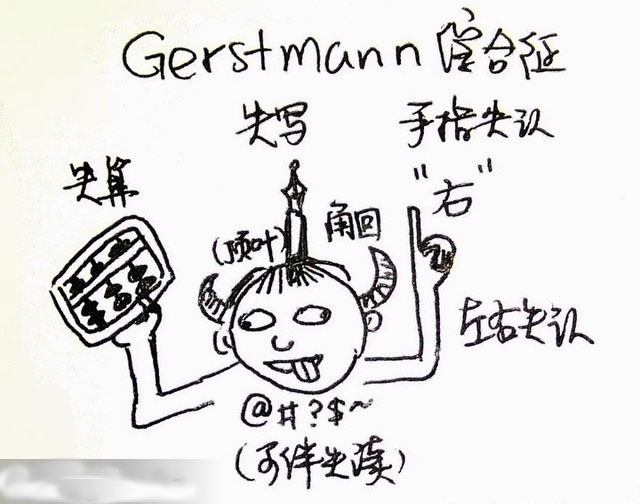 Gerstmann 综合征
失写
手指失认
失算
"右"
(顶叶)
角回
左右失认
@#?$~
(可伴失读)